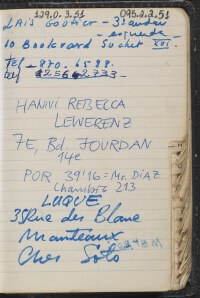 139.0.3.51 095.2.2.51
LAIS GOUTIER - 3º andar
esquerda
10 Boulevard Suchet XVI.
Tel - 870.6588.
325642.733
HANNI REBECCA
LEWERENZ
7E, Bd. JOURDAN
14e
POR 39'16 = Mr. DíAZ
Chambre 213
LUQUE
35Rue des Blanc
Manteaux
Chez Soto